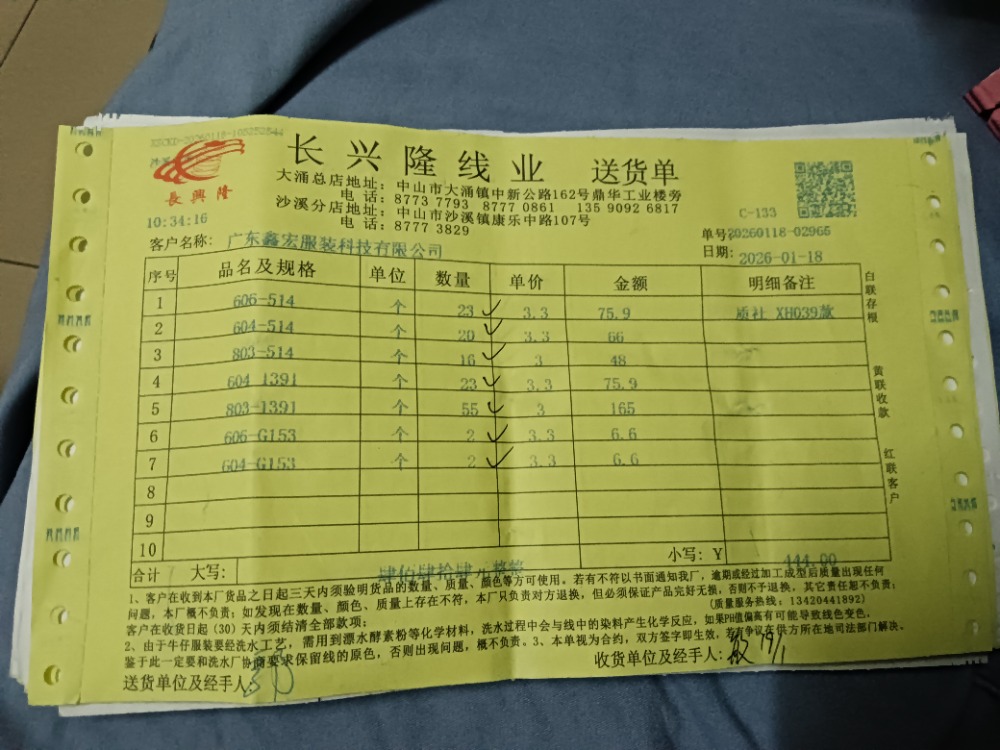 XSCKD-20260118-105252544
長興隆
长兴隆线业 送货单
大涌总店地址：中山市大涌镇中新公路162号鼎华工业楼旁
电话：8773 7793 8777 0861 135 9092 6817
沙溪分店地址：中山市沙溪镇康乐中路107号
电话：8777 3829
C-133
10:34:16
单号：20260118-02965
客户名称：广东鑫宏服装科技有限公司
日期：2026-01-18
序号 品名及规格 单位 数量 单价 金额 明细备注
1 606-514 个 23 3.3 75.9 质社 XH039款
2 604-514 个 20 3.3 66
3 803-514 个 16 3 48
4 604-1391 个 23 3.3 75.9
5 803-1391 个 55 3 165
6 606-G153 个 2 3.3 6.6
7 604-G153 个 2 3.3 6.6
8
9
10
合计 大写：肆佰肆拾肆元整 小写：Y 444.00
白联存根
黄联收款
红联客户
1、客户在收到本厂货品之日起三天内须验明货品的数量、质量、颜色等方可使用。若有不符以书面通知我厂，逾期或经过加工成型后质量出现任何
问题，本厂概不负责；如发现在数量、颜色、质量上存在不符，本厂只负责对方退换，但必须保证产品完好无损，否则不予退换，其它责任恕不负责；
客户在收货日起（30）天内须结清全部款项； （质量服务热线：13420441892）
2、由于牛仔服装要经洗水工艺，需用到漂水酵素粉等化学材料，洗水过程中会与线中的染料产生化学反应，如果PH值偏高有可能导致线色变色，
鉴于此一定要和洗水厂协商要求保留线的原色，否则出现问题，概不负责。3、本单视为合约，双方签字即生效，若有争议在供方所在地司法部门解决。
送货单位及经手人： 收货单位及经手人：